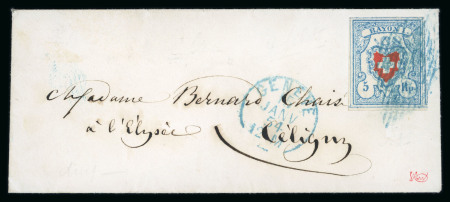 RAYON I
5 Rp.
GENÈVE
JANV
54
Madame Bernard Chais.
à l'Elysée
Céligny